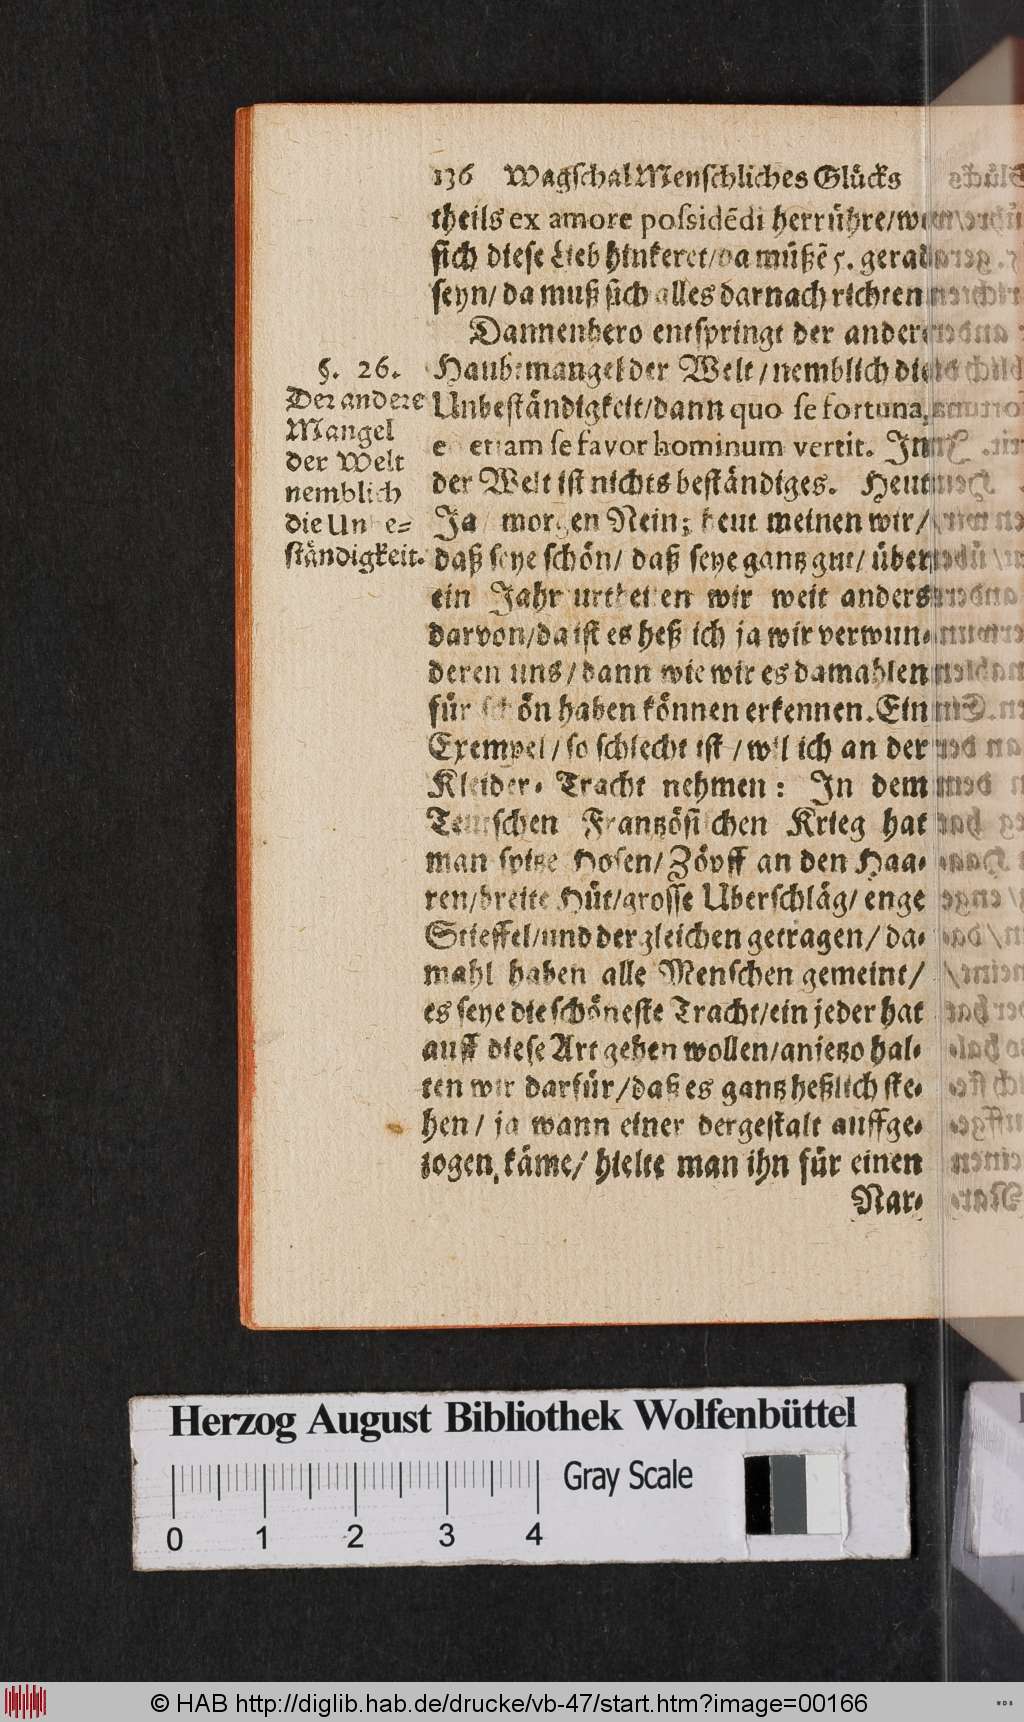 136 Wagschal Menschliches Glücks
theils ex amore possidēdi herrühre/
sich diese Lieb hinkeret/da müßē 5. gerad
seyn/ da muß sich alles darnach richten
Dannenhero entspringt der ander
§. 26.
Der andere
Mangel
der Welt
nemblich
die Unbe=
ständigkeit.
Haubtmangel der Welt/nemblich die
Unbeständigkeit/dann quo se fortuna,
eo etiam se favor hominum vertit. In
der Welt ist nichts beständiges. Heut
Ja/ morgen Nein; heut meinen wir/
daß seye schön/ daß seye gantz gut/ über
ein Jahr urtheilen wir weit anders
darvon/da ist es heßlich ja wir verwun-
deren uns/dann wie wir es damahlen
für schön haben können erkennen. Ein
Exempel/so schlecht ist/wil ich an der
Kleider-Tracht nehmen: In dem
Teutschen Frantzösischen Krieg hat
man spitze Hosen/Zöpff an den Haa-
ren/breite Hüt/grosse Uberschläg/ enge
Stieffel/und dergleichen getragen/ da-
mahl haben alle Menschen gemeint/
es seye die schöneste Tracht/ein jeder hat
auff diese Art gehen wollen/anietzo hal-
ten wir darfür/daß es gantz heßlich ste-
hen/ ja wann einer dergestalt auffge-
zogen käme/ hielte man ihn für einen
Nar-
Herzog August Bibliothek Wolfenbüttel
Gray Scale
0 1 2 3 4
© HAB http://diglib.hab.de/drucke/vb-47/start.htm?image=00166